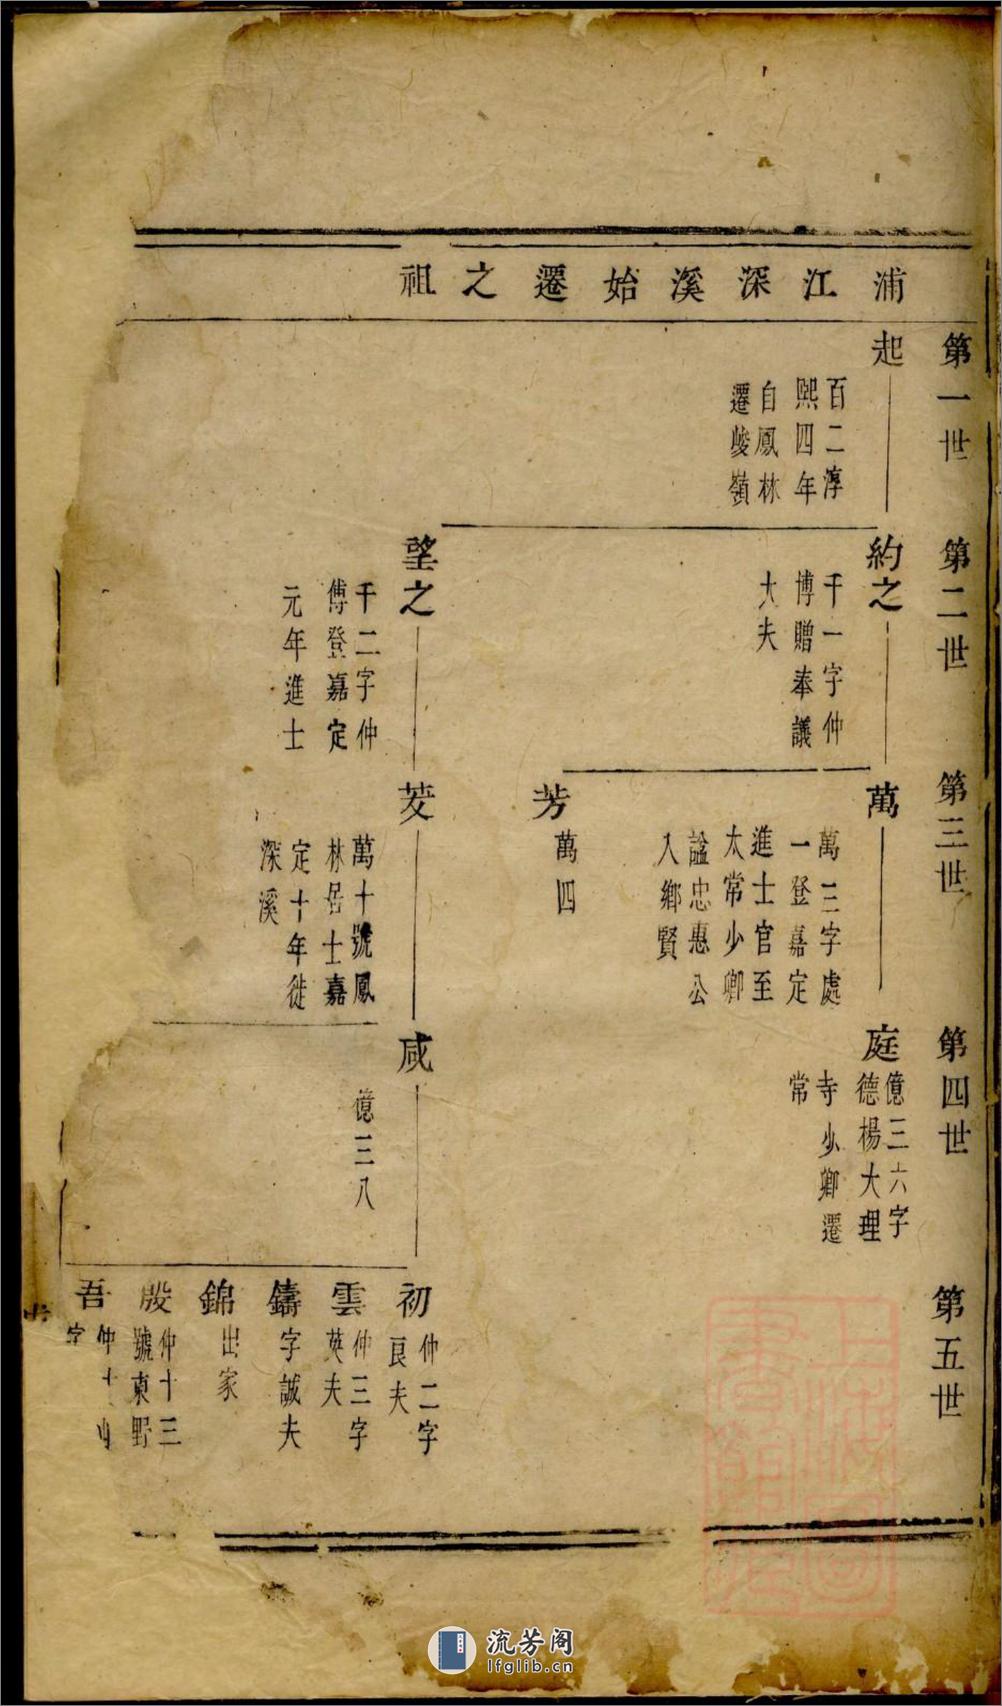 浦江深溪始遷之祖
第一世
起
百二淳
熙四年
自鳳林
遷峻嶺
第二世
約之
千一字仲
博贈奉議
大夫
望之
千二字仲
傅登嘉定
元年進士
第三世
萬
萬三字處
一登嘉定
進士官至
太常少卿
諡忠惠公
入鄉賢
芳
萬四
芠
萬十號鳳
林居士嘉
定十年徙
深溪
第四世
庭
億三六字
德楊大理
寺少卿遷
常
咸
億三八
第五世
初
仲二字
良夫
雲
仲三字
英夫
鑄
字誠夫
錦
出家
殷
仲十三
號東野
吾
仲十
字
流芳阁
lfglib.cn